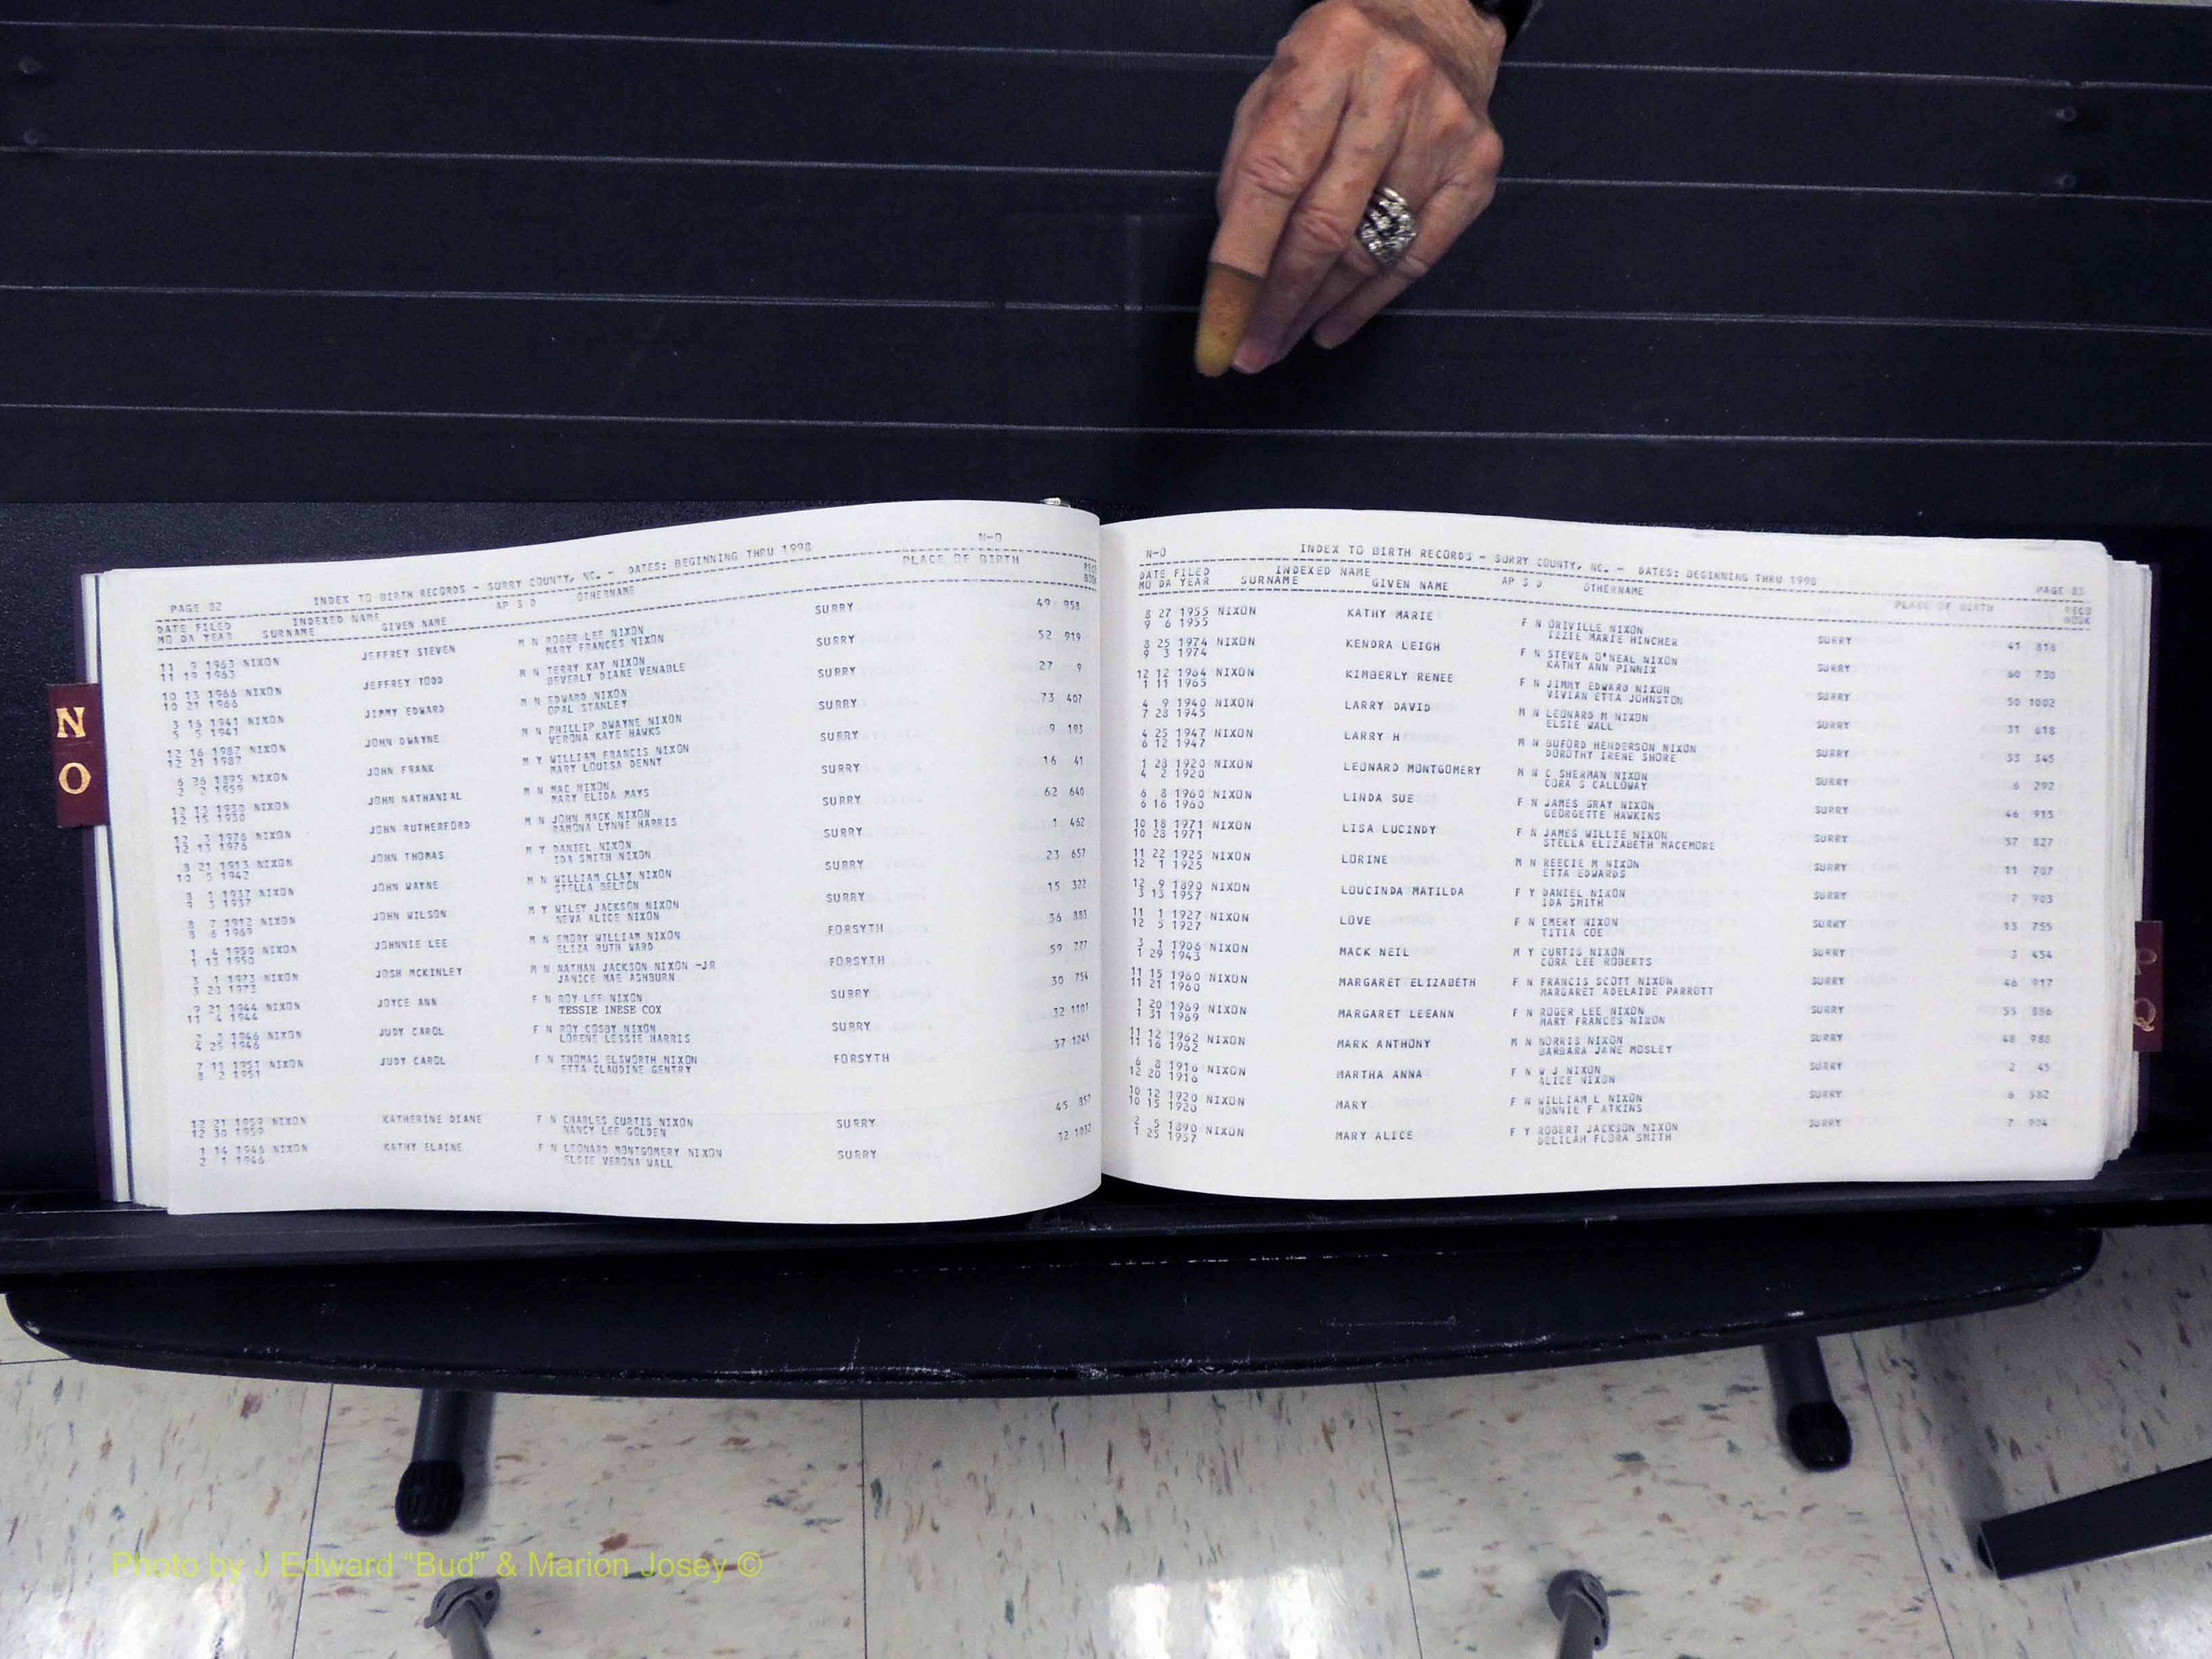 N
O
PAGE 82 INDEX TO BIRTH RECORDS - SURRY COUNTY, NC. - DATES: BEGINNING THRU 1998 N-O
DATE FILED INDEXED NAME AP S D OTHERNAME PLACE OF BIRTH
MO DA YEAR SURNAME GIVEN NAME
11 9 1963 NIXON JEFFREY STEVEN M N ROGER LEE NIXON SURRY 49 958
11 19 1963 MARY FRANCES NIXON
10 13 1966 NIXON JEFFREY TODD M N TERRY KAY NIXON SURRY 52 919
10 21 1966 BEVERLY DIANE VENABLE
3 16 1941 NIXON JIMMY EDWARD M N EDWARD NIXON SURRY 27 9
5 5 1941 OPAL STANLEY
12 16 1987 NIXON JOHN DWAYNE M N PHILLIP DWAYNE NIXON SURRY 73 407
12 21 1987 VERONA KAYE HAWKS
6 26 1895 NIXON JOHN FRANK M Y WILLIAM FRANCIS NIXON SURRY 9 193
2 2 1959 MARY LOUISA DENNY
12 13 1930 NIXON JOHN NATHANIAL M N MAC NIXON SURRY 16 41
12 15 1930 MARY ELIDA MAYS
12 3 1976 NIXON JOHN RUTHERFORD M N JOHN MACK NIXON SURRY 62 640
12 13 1976 RAMONA LYNNE HARRIS
8 21 1913 NIXON JOHN THOMAS M Y DANIEL NIXON SURRY 1 462
10 5 1942 IDA SMITH NIXON
8 1 1937 NIXON JOHN WAYNE M N WILLIAM CLAY NIXON SURRY 23 657
9 3 1937 STELLA BELTON
8 7 1912 NIXON JOHN WILSON M Y WILEY JACKSON NIXON SURRY 15 322
8 6 1969 NEVA ALICE NIXON
1 4 1950 NIXON JOHNNIE LEE M N EMORY WILLIAM NIXON FORSYTH 36 883
1 13 1950 ELIZA RUTH WARD
3 1 1973 NIXON JOSH MCKINLEY M N NATHAN JACKSON NIXON -JR FORSYTH 59 777
3 23 1973 JANICE MAE ASHBURN
9 21 1944 NIXON JOYCE ANN F N ROY LEE NIXON SURRY 30 754
11 4 1944 TESSIE INESE COX
2 2 1946 NIXON JUDY CAROL F N ROY COSBY NIXON SURRY 32 1101
4 25 1946 LORENE LESSIE HARRIS
7 11 1951 NIXON JUDY CAROL F N THOMAS ELSWORTH NIXON FORSYTH 37 1245
8 2 1951 ETTA CLAUDINE GENTRY
12 21 1959 NIXON KATHERINE DIANE F N CHARLES CURTIS NIXON SURRY 45 857
12 30 1959 NANCY LEE GOLDEN
1 14 1946 NIXON KATHY ELAINE F N LEONARD MONTGOMERY NIXON SURRY 32 1032
2 1 1946 ELSIE VERONA WALL
N-O INDEX TO BIRTH RECORDS - SURRY COUNTY, NC. - DATES: BEGINNING THRU 1998 PAGE 83
DATE FILED INDEXED NAME AP S D OTHERNAME PLACE OF BIRTH RECO
MO DA YEAR SURNAME GIVEN NAME BOOK
8 27 1955 NIXON KATHY MARIE F N ORIVILLE NIXON SURRY 41 818
9 6 1955 IZZIE MARIE HINCHER
8 25 1974 NIXON KENDRA LEIGH F N STEVEN O'NEAL NIXON SURRY 60 730
9 3 1974 KATHY ANN PINNIX
12 12 1964 NIXON KIMBERLY RENEE F N JIMMY EDWARD NIXON SURRY 50 1002
1 11 1965 VIVIAN ETTA JOHNSTON
4 9 1940 NIXON LARRY DAVID M N LEONARD M NIXON SURRY 31 618
7 28 1945 ELSIE WALL
4 25 1947 NIXON LARRY H M N BUFORD HENDERSON NIXON SURRY 33 345
6 12 1947 DOROTHY IRENE SHORE
1 28 1920 NIXON LEONARD MONTGOMERY M N C SHERMAN NIXON SURRY 6 292
4 2 1920 CORA S CALLOWAY
6 8 1960 NIXON LINDA SUE F N JAMES GRAY NIXON SURRY 46 915
6 16 1960 GEORGETTE HAWKINS
10 18 1971 NIXON LISA LUCINDY F N JAMES WILLIE NIXON SURRY 57 827
10 28 1971 STELLA ELIZABETH MACEMORE
11 22 1925 NIXON LORINE M N REECIE M NIXON SURRY 11 707
12 1 1925 ETTA EDWARDS
12 9 1890 NIXON LOUCINDA MATILDA F Y DANIEL NIXON SURRY 7 903
3 13 1957 IDA SMITH
11 1 1927 NIXON LOVE F N EMERY NIXON SURRY 13 755
12 5 1927 TITIA COE
3 1 1906 NIXON MACK NEIL M Y CURTIS NIXON SURRY 3 454
1 29 1943 CORA LEE ROBERTS
11 15 1960 NIXON MARGARET ELIZABETH F N FRANCIS SCOTT NIXON SURRY 46 917
11 21 1960 MARGARET ADELAIDE PARROTT
1 20 1969 NIXON MARGARET LEEANN F N ROGER LEE NIXON SURRY 55 886
1 31 1969 MARY FRANCES NIXON
11 12 1962 NIXON MARK ANTHONY M N NORRIS NIXON SURRY 48 988
11 16 1962 BARBARA JANE MOSLEY
6 8 1916 NIXON MARTHA ANNA F N W J NIXON SURRY 2 45
12 20 1916 ALICE NIXON
10 12 1920 NIXON MARY F N WILLIAM L NIXON SURRY 6 582
10 15 1920 NONNIE F ATKINS
2 5 1890 NIXON MARY ALICE F Y ROBERT JACKSON NIXON SURRY 7 904
1 25 1957 DELILAH FLORA SMITH
Photo by J Edward “Bud” & Marion Josey ©